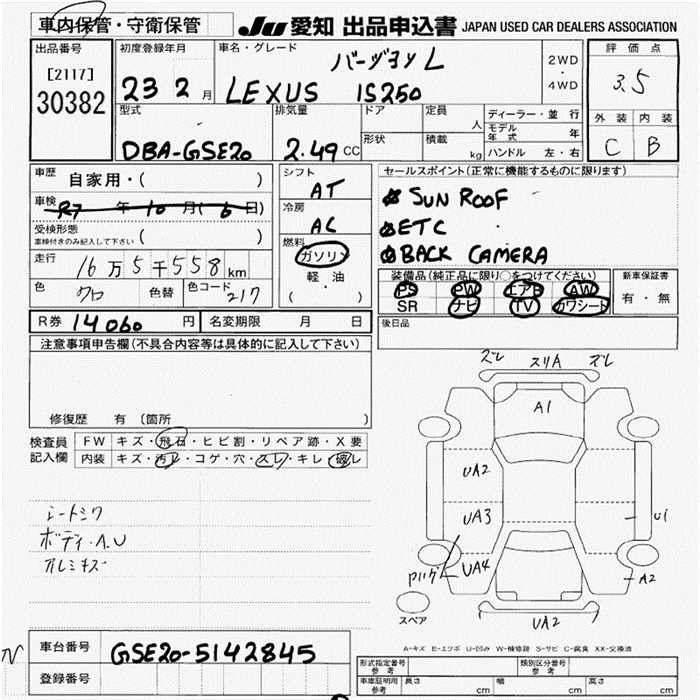 車内保管・守衛保管
JU 愛知 出品申込書 JAPAN USED CAR DEALERS ASSOCIATION
出品番号
[2117]
30382
初度登録年月
23 2 月
車名・グレード
バージョンL
LEXUS IS250
2WD
・
4WD
評価点
3.5
外装 内装
C B
型式
DBA-GSE20
排気量
2.49 CC
ドア
形状
定員
人
積載
kg
ディーラー・並行
モデル年式 年
ハンドル 左・右
車歴
自家用・( )
車検
R7 年 10 月( 6 日)
受検形態
車検付きのみ記入して下さい ( )
走行
16万5千558km
色
クロ
色替
色コード
217
シフト
AT
冷房
AC
燃料
ガソリン
軽・油
( ・ )
セールスポイント(正常に機能するものに限ります)
SUN ROOF
ETC
BACK CAMERA
装備品(純正品に限り○をつけてください)
PS PW エアB AW
SR ナビ TV カワシート
新車保証書
有・無
後日品
R券 14060 円
名変期限 月 日
注意事項申告欄(不具合内容等は具体的に記入して下さい)
修復歴 有(箇所 )
検査員
記入欄
FW キズ・飛石・ヒビ割・リペア跡・X要
内装 キズ・汚レ・コゲ・穴・スレ・キレ・破レ
シートシワ
ボディ・A.U
アルミキズ
ズレ スリA ズレ
A1
UA2
UA3
U1
UA4
A2
UA2
スペア
A-キズ E-エクボ U-凹み W-補修跡 S-サビ C-腐食 XX-交換済
車台番号
GSE20-5142845
登録番号
形式指定番号
参考
類別区分番号
参考
車庫証明用
参考
長さ cm 幅 cm 高さ cm